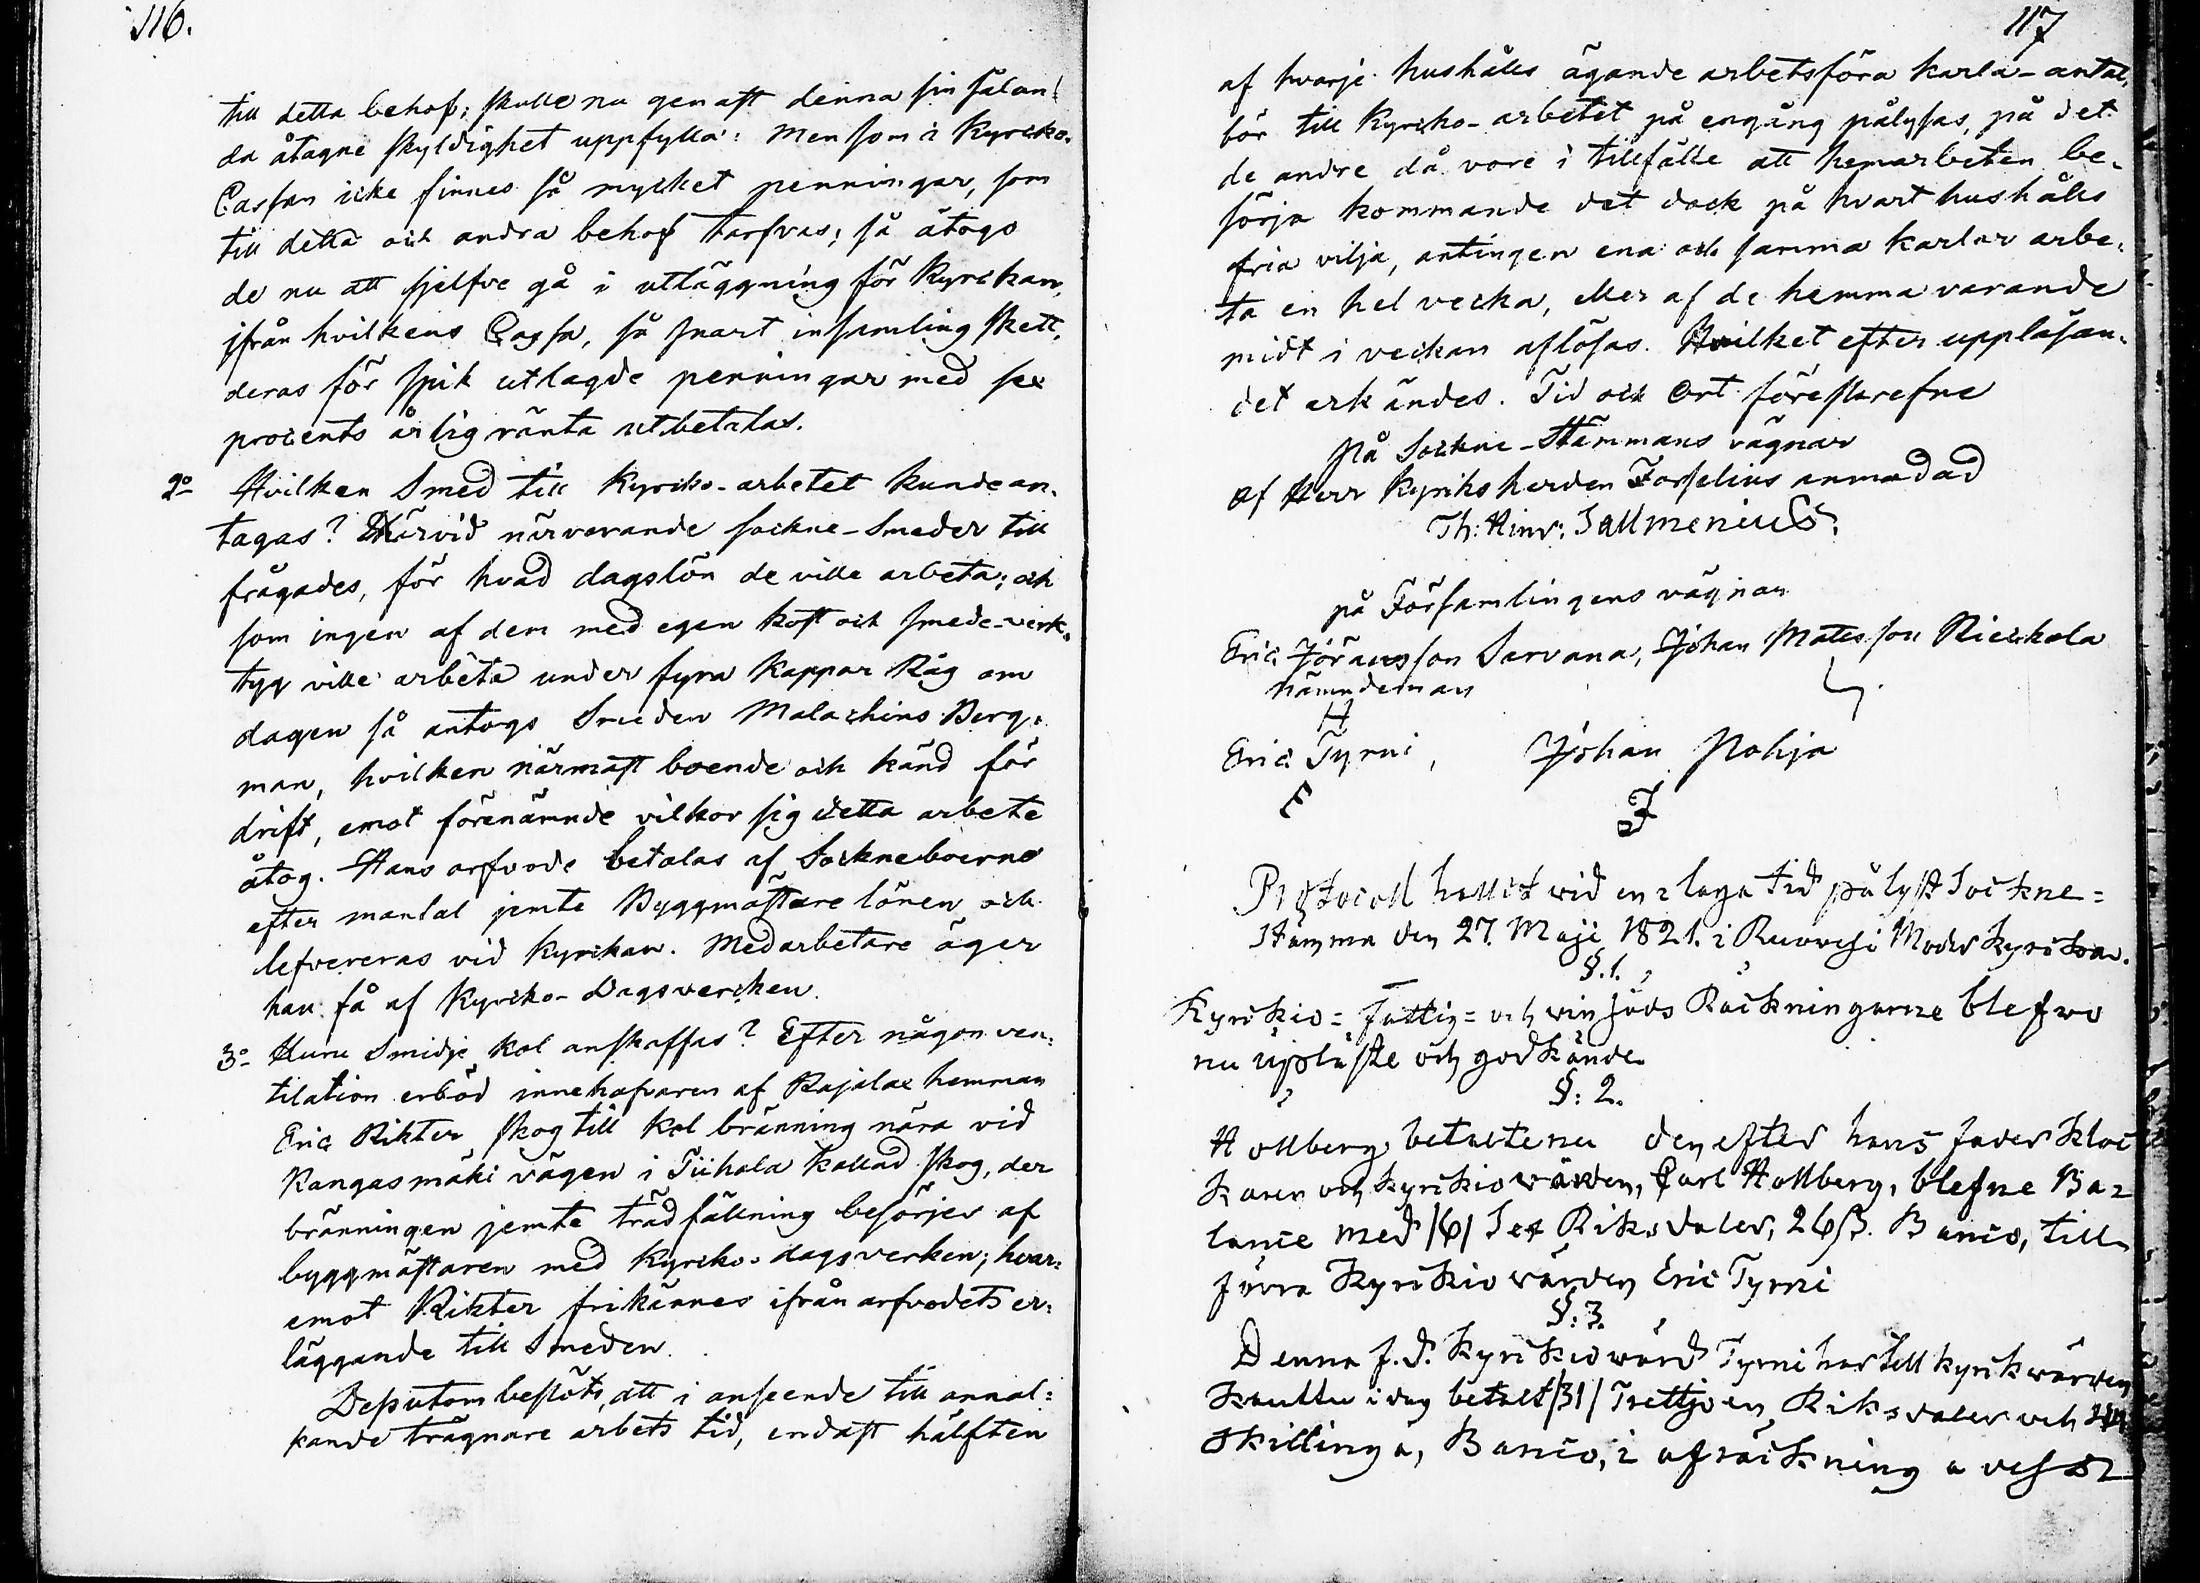 116.
till detta behof; skulle nu genast denna sin sålun
da åtagne skyldighet uppfylla: Men som i Kyrcko-
Cassan icke finnes så mycket penningar, som
till detta och andra behof tarfvas; så åtogo
de nu att sjelfve gå i utläggning för Kyrckan,
ifrån hvilkens Cassa, så snart insamling skett,
deras för spik utlagde penningar med sex
procents årlig ränta utbetalas.
2o Hvilken Smed till Kyrcko-arbetet kunde an-
tagas? Härvid närvarande sockne-Smeder till
frågades, för hvad dagslön de ville arbeta; och
som ingen af dem med egen kost och smede-verk-
tyg ville arbeta under fyra kappar Råg om
dagen så antogs Smeden Malachias Berg-
man, hvilken närmast boende och känd för
drift, emot förenämnde vilkor sig detta arbete
åtog. Hans arfvode betalas af Sockneboerne
efter mantal jemte Byggmästare lönen och
lefvereras vid Kyrckan. Medarbetare äger
han få af Kyrcko-Dagsvercken.
3o Huru Smidje kol anskaffas? Efter någon ven-
tilation erböd innehafvaren af Rajalax hemman
Eric Rikter skog till kol bränning nära vid
Kangasmäki vägen i Tiihala kallad skog, der
bränningen jemte trädfällning besörjes af
byggmästaren med Kyrcko-dagsverken; hvar-
emot Rikter frikännes ifrån arfvodets er-
läggande till Smeden.
Dessutom beslöts, att i anseende till annal-
kande trägnare arbets tid, endast hälften
117
af hvarje hushålls ägande arbetsföra karla-antal,
bör till Kyrcko-arbetet på engång pålysas, på det
de andre då vore i tillfälle att hemarbeten be-
sörja kommande det dock på hvart hushålls
fria vilja, antingen ena och samma karlar arbe-
ta en hel vecka, eller af de hemma varande
midt i veckan aflösas. Hvilket efter uppläsan-
det erkändes. Tid och Ort föreskrefne
På Sockne-Stämmans vägnar
af Herr Kyrkoherden Forselius anmodad
Th: Hinr: Sallmenius.
på Församlingens vägnar
Eric Jöransson Sarvana, Johan Matsson Rieckola
Nämndeman
H
Eric Tyrni, Johan Pohja
E J
Protocoll hallit wid en i laga tid pålyst Sockne=
Stämma den 27. Maji 1821. i Ruovesi Moder Kyrckan.
§.1.
Kyrckio= Fattig= och Räckningarne blefwo
nu upläste och godkände
§: 2.
Hollberg betalte nu den efter hans fader kloc
karen och kyrckiowärden, Carl Hollberg, blefne Ba=
lance med /6/ Sex Riksdaler, 26 ß. Banco, till
förra Kyrckiowärden Eric Tyrni
§: 3.
Denna f.d. Kyrckiowärd Tyrni har till kyrckwärden
i dag betalt /31/ Trettjoen Riksdaler och
skillinga, Banco, i afräckning